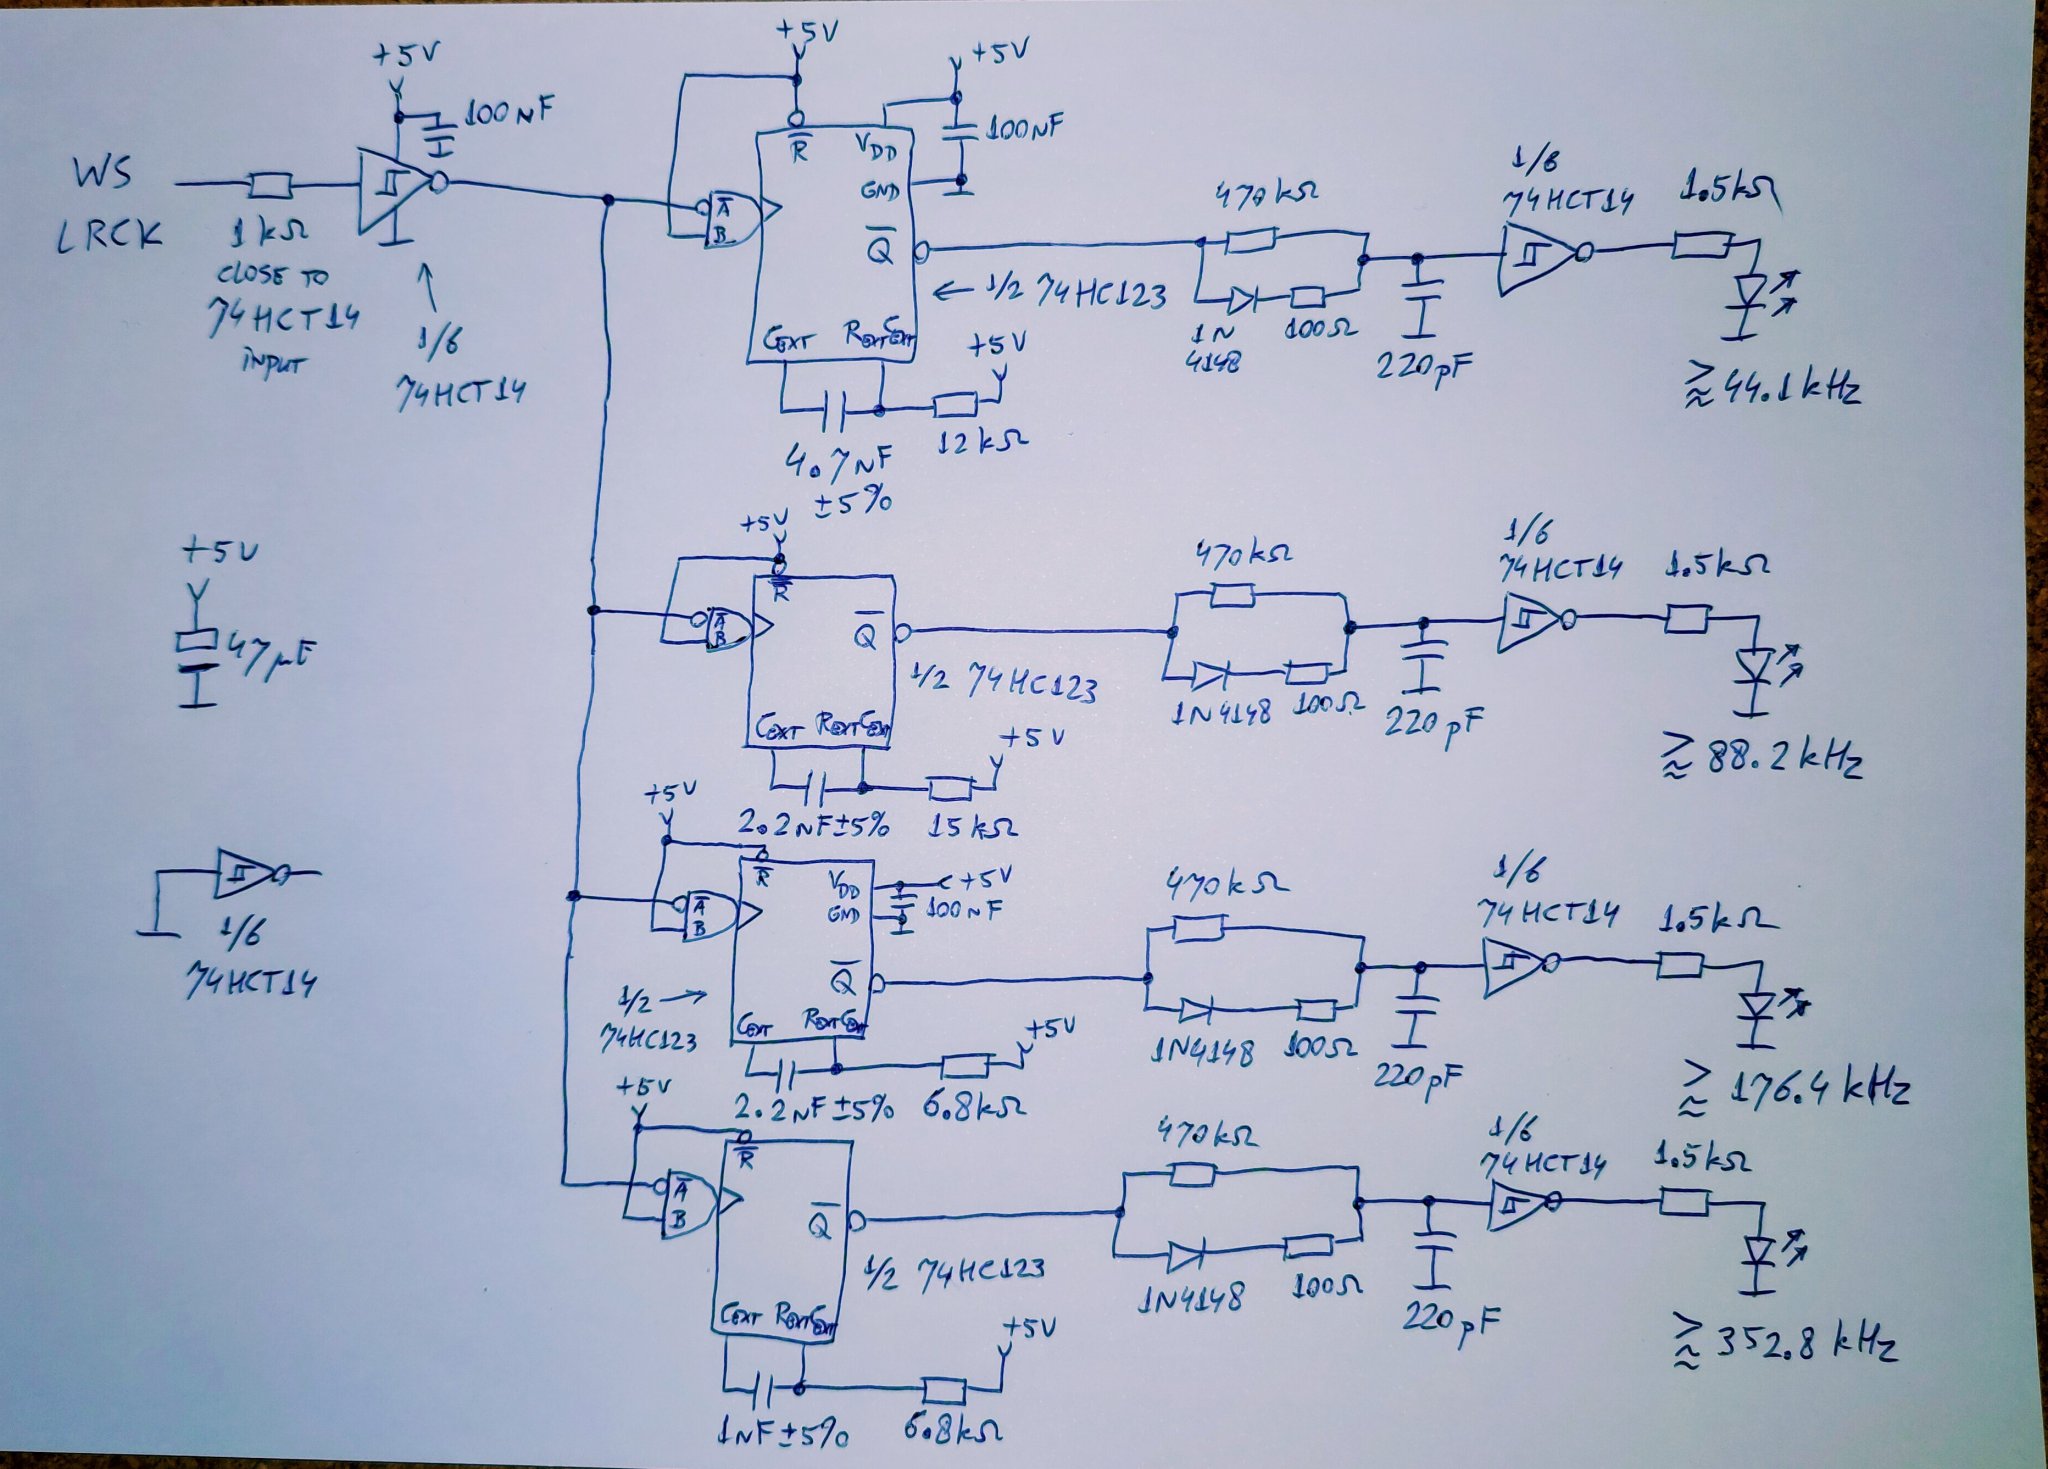 +5V
100NF
WS
LRCK
1kΩ
CLOSE TO
74HCT14
INPUT
1/6
74HCT14
+5V
+5V
R̅
VDD
GND
100NF
A̅
B
Q̅
← 1/2 74HC123
CEXT
REXTCEXT
+5V
4.7NF
±5%
12kΩ
470kΩ
1N
4148
100Ω
220pF
1/6
74HCT14
1.5kΩ
≳44.1kHz
+5V
47µF
+5V
R̅
A̅
B
Q̅
1/2 74HC123
CEXT
REXTCEXT
+5V
2.2NF±5%
15kΩ
470kΩ
1N4148
100Ω
220pF
1/6
74HCT14
1.5kΩ
≳88.2kHz
1/6
74HCT14
+5V
R̅
A̅
B
VDD
GND
+5V
100NF
Q̅
1/2 →
74HC123
CEXT
REXTCEXT
+5V
2.2NF±5%
6.8kΩ
470kΩ
1N4148
100Ω
220pF
1/6
74HCT14
1.5kΩ
≳176.4kHz
+5V
R̅
A̅
B
Q̅
1/2 74HC123
CEXT
REXTCEXT
+5V
1NF±5%
6.8kΩ
470kΩ
1N4148
100Ω
220pF
1/6
74HCT14
1.5kΩ
≳352.8kHz